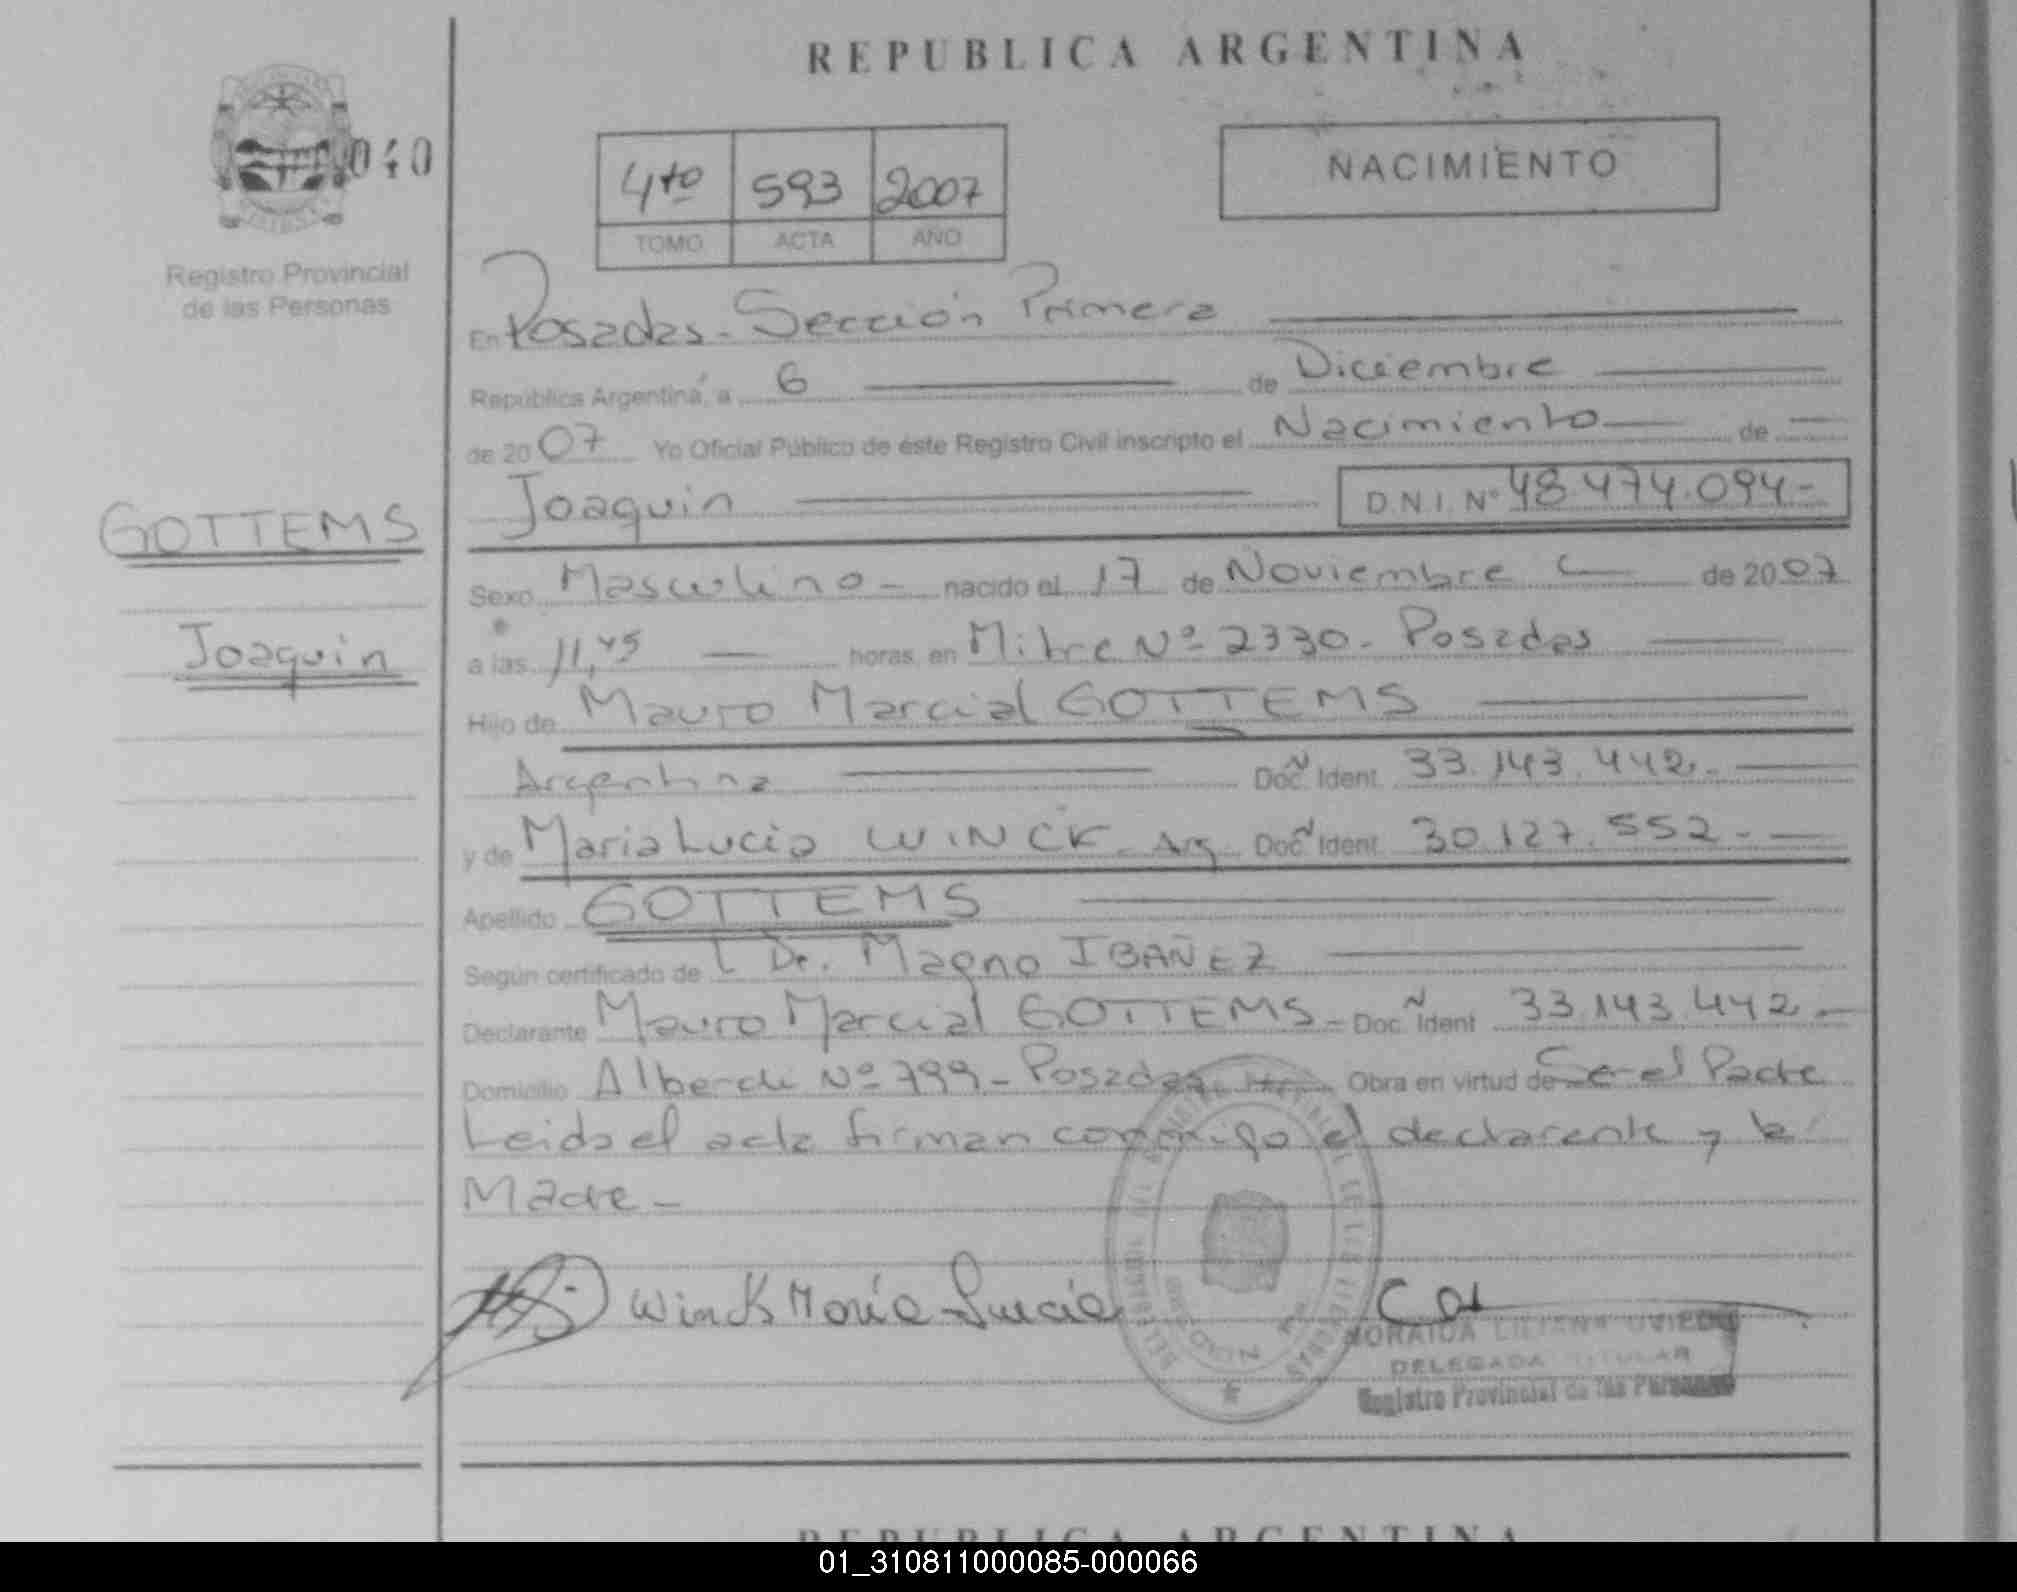 REPUBLICA ARGENTINA
040
4to 593 2007
TOMO ACTA AÑO
NACIMIENTO
Registro Provincial
de las Personas
En Posadas - Sección Primera
República Argentina, a 6 de Diciembre
de 2007 Yo Oficial Público de éste Registro Civil inscripto el Nacimiento de
Joaquin D.N.I. Nº 48.474.094-
GOTTEMS
Joaquin
Sexo Masculino - nacido el 17 de Noviembre de 2007
a las 11,45 horas, en Mitre Nº 2330 - Posadas
Hijo de Mauro Marcial GOTTEMS
Argentina Doc. Ident. 33.143.442.-
y de Maria Lucia WINCK - Arg. Doc. Ident. 30.127.552.-
Apellido GOTTEMS
Según certificado de Dr. Magno IBAÑEZ
Declarante Mauro Marcial GOTTEMS - Doc. Ident 33.143.442.-
Domicilio Alberdi Nº 799 - Posadas Obra en virtud de Ser el Padre
Leida el acta firman conmigo el declarante y la
Madre -
Winck María Lucia
LILIANA
DELEGADA TITULAR
Registro Provincial de las Personas
REPUBLICA ARGENTINA
01_310811000085-000066